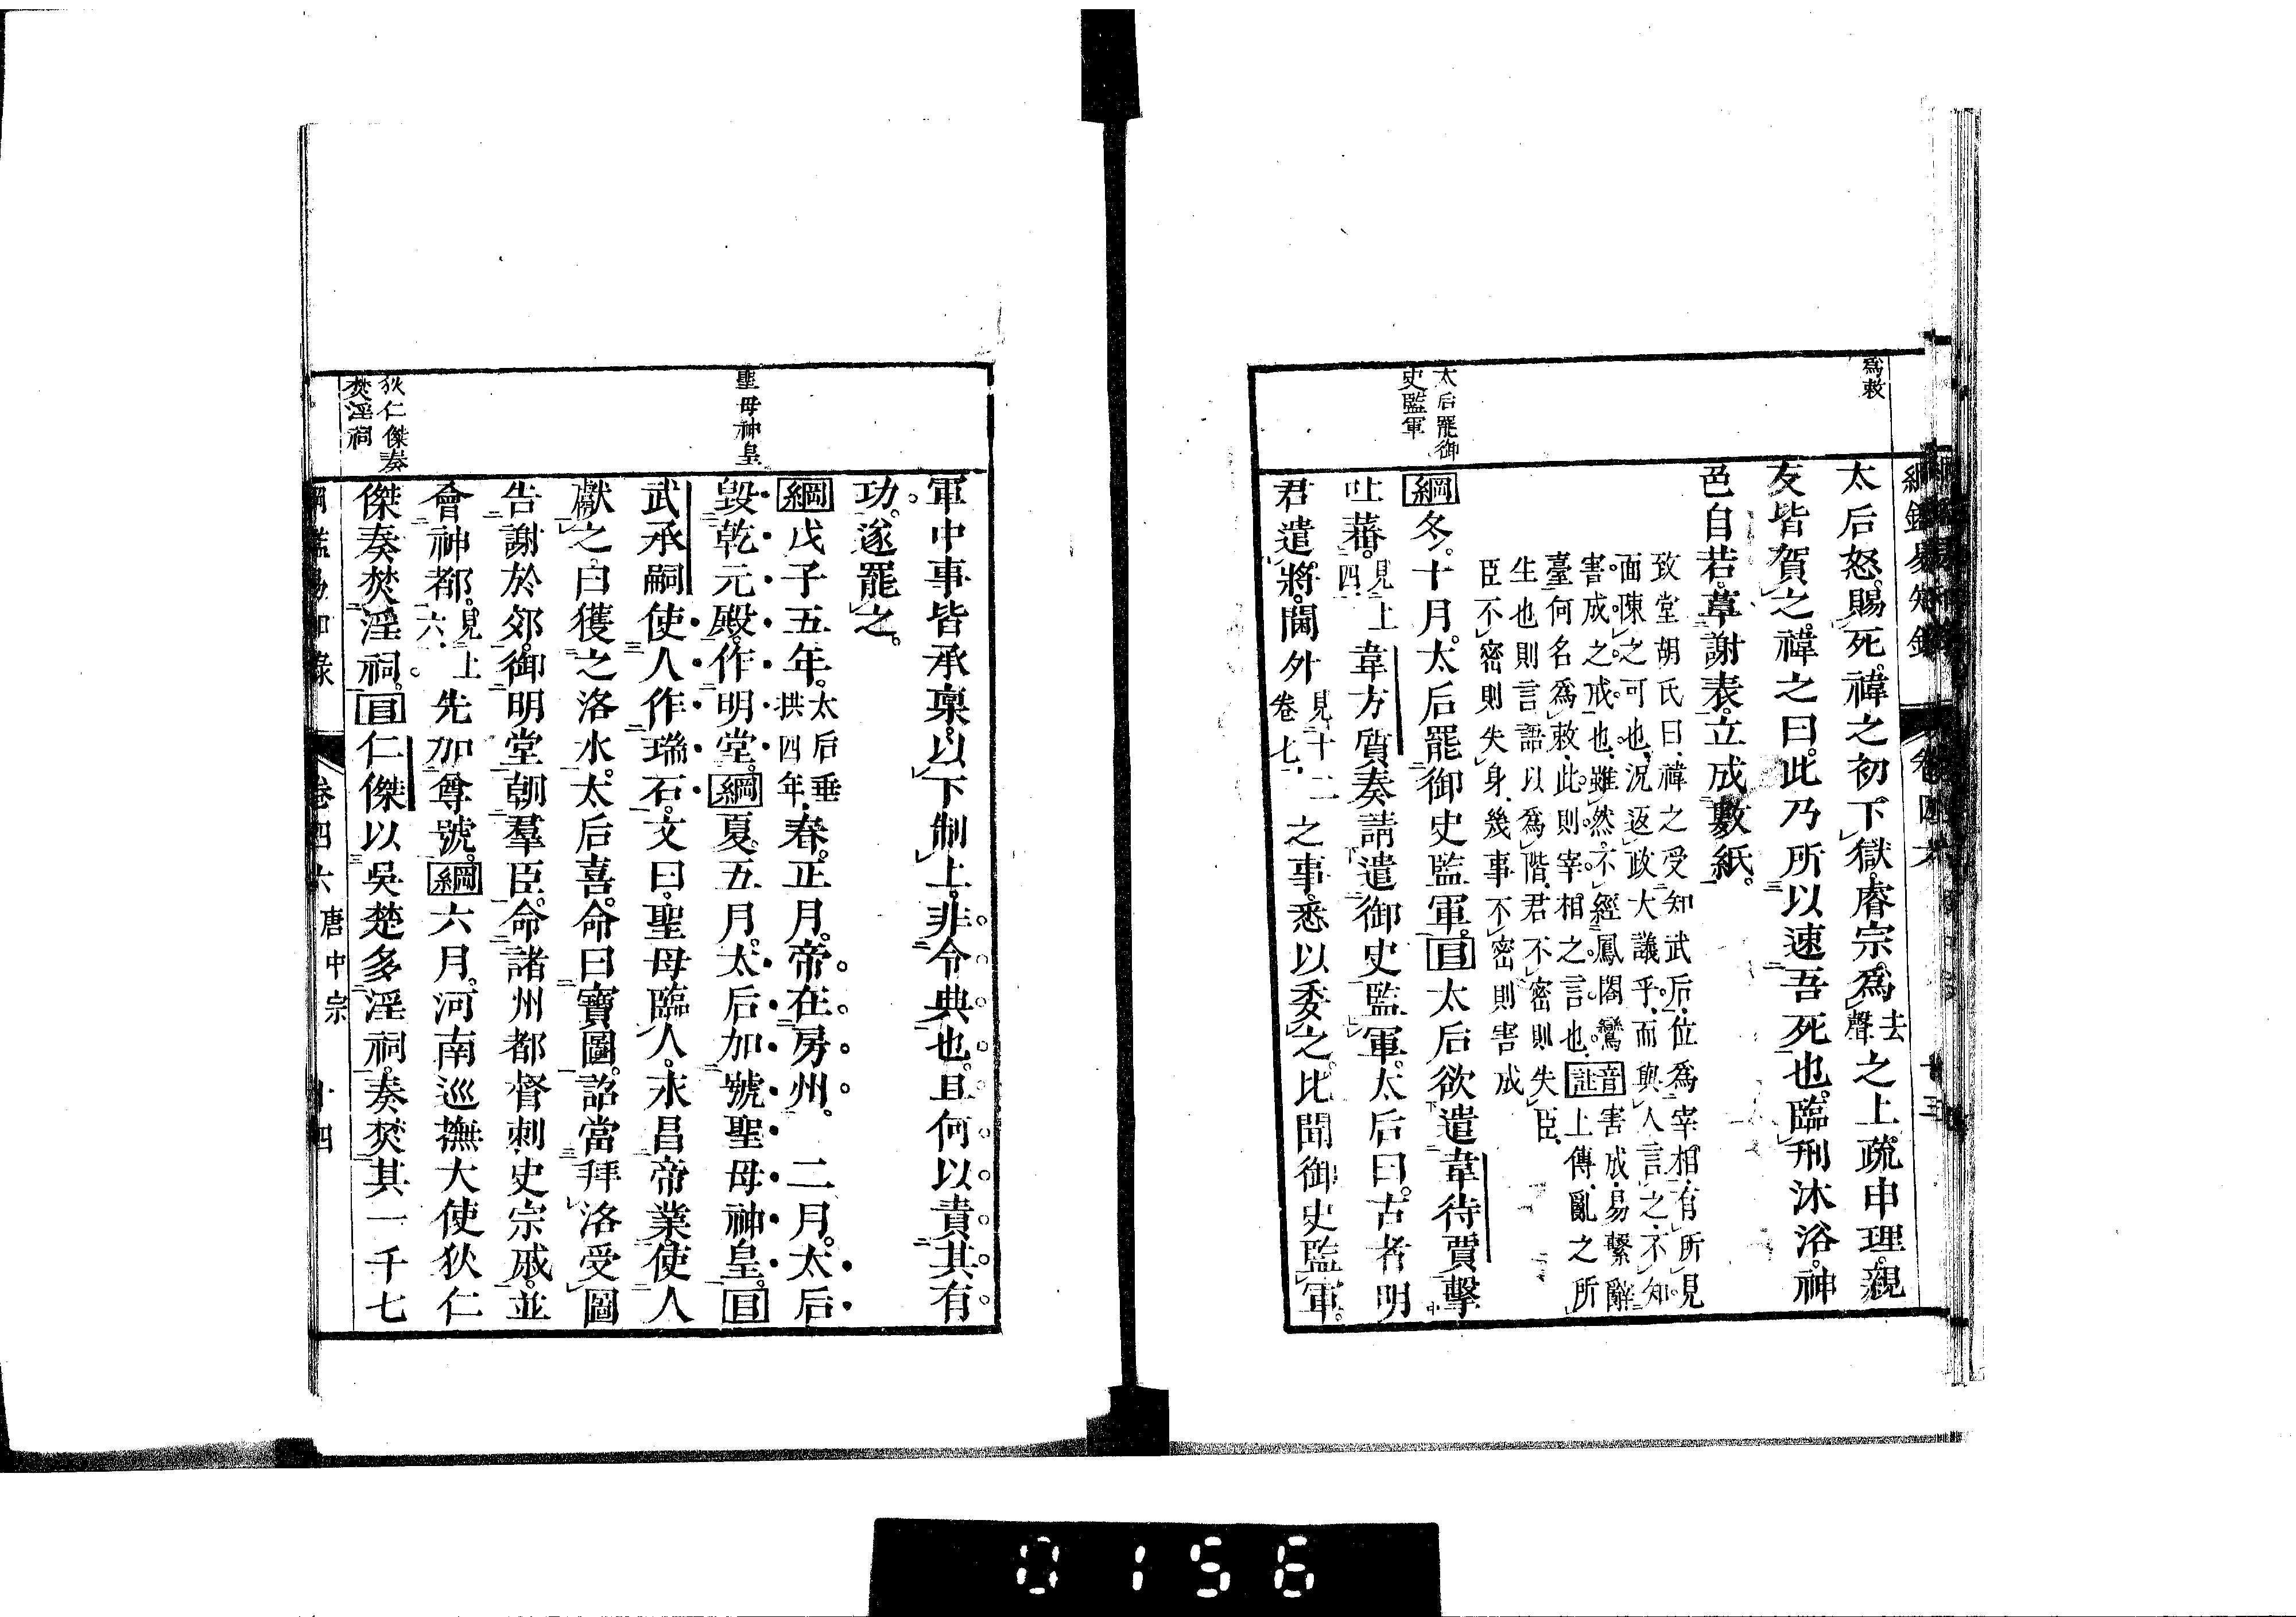 爲敕
太后罷御
史監軍
綱鑑易知錄 卷四六 廿三
太后怒。賜死。禕之初下獄。睿宗。爲去聲之上疏申理。親
友皆賀之。禕之曰。此乃所以速吾死也。臨刑沐浴。神
色自若。草謝表。立成數紙。
致堂胡氏曰、禕之受知武后、位爲宰相、有所見
面陳之可也、況返政大議乎、而與人言之、不知
害成之戒也、雖然、不經鳳閣鸞
臺何名爲敕、此則宰相之言也、
証音害成、易繫辭
上傳、亂之所
生也則言語以爲階、君不密則失臣、
臣不密則失身、幾事不密則害成
綱冬。十月。太后罷御史監軍。目太后欲遣韋待賈擊
吐蕃。見上四、韋方質奏請遣御史監軍。太后曰。古者明
君遣將。閫外見十二卷七、之事。悉以委之。比聞御史監軍。
聖母神皇
狄仁傑奏
焚淫祠
軍中事皆承稟。以下制上。非令典也。且何以責其有
功。遂罷之。
綱戊子五年。太后垂拱四年、春。正月。帝在房州。 二月。太后
毀乾元殿。作明堂。綱夏。五月。太后加號聖母神皇。目
武承嗣使人作瑞石。文曰、聖母臨人。永昌帝業。使人
獻之、曰獲之洛水。太后喜。命曰寶圖。詔當拜洛受圖
告謝於郊。御明堂朝羣臣。命諸州都督刺史宗戚。並
會神都。見上六、先加尊號。綱六月。河南巡撫大使狄仁
傑奏焚淫祠。目仁傑以吳楚多淫祠。奏焚其一千七
綱鑑易知錄 卷四六 唐中宗 廿四
0156